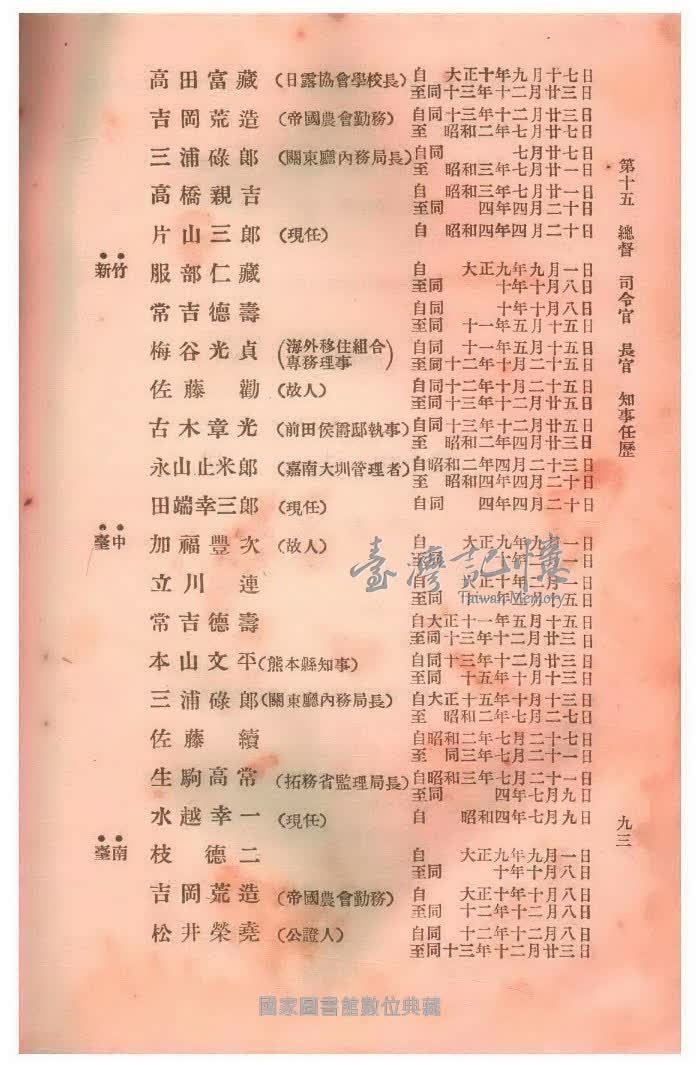 第十五 總督 司令官 長官 知事任歷
高田富藏 (日露協會學校長) 自 大正十年九月十七日
至同十三年十二月廿三日
吉岡荒造 (帝國農會勤務) 自同十三年十二月廿三日
至 昭和二年七月廿七日
三浦碌郎 (關東廳內務局長) 自同 七月廿七日
至 昭和三年七月廿一日
高橋親吉 自 昭和三年七月廿一日
至同 四年四月二十日
片山三郎 (現任) 自 昭和四年四月二十日
新竹 服部仁藏 自 大正九年九月一日
至同 十年十月八日
常吉德壽 自同 十年十月八日
至同 十一年五月十五日
梅谷光貞 (海外移住組合專務理事) 自同 十一年五月十五日
至同十二年十月二十五日
佐藤勸 (故人) 自同十二年十月二十五日
至同十三年十二月廿五日
古木章光 (前田侯爵邸執事) 自同十三年十二月廿五日
至 昭和二年四月二十三日
永山止米郎 (嘉南大圳管理者) 自昭和二年四月二十三日
至 昭和四年四月二十日
田端幸三郎 (現任) 自同 四年四月二十日
臺中 加福豐次 (故人) 自 大正九年九月一日
立川連
常吉德壽 自大正十一年五月十五日
至同十三年十二月廿三日
本山文平 (熊本縣知事) 自同十三年十二月廿三日
至同 十五年十月十三日
三浦碌郎 (關東廳內務局長) 自大正十五年十月十三日
至 昭和二年七月二七日
佐藤續 自昭和二年七月二十七日
至 同三年七月二十一日
生駒高常 (拓務省監理局長) 自昭和三年七月二十一日
至同 四年七月九日
水越幸一 (現任) 自 昭和四年七月九日
臺南 枝德二 自 大正九年九月一日
至同 十年十月八日
吉岡荒造 (帝國農會勤務) 自 大正十年十月八日
至同 十二年十二月八日
松井榮堯 (公證人) 自同 十二年十二月八日
至同十三年十二月廿三日
九三
臺灣記憶
Taiwan Memory
國家圖書館數位典藏